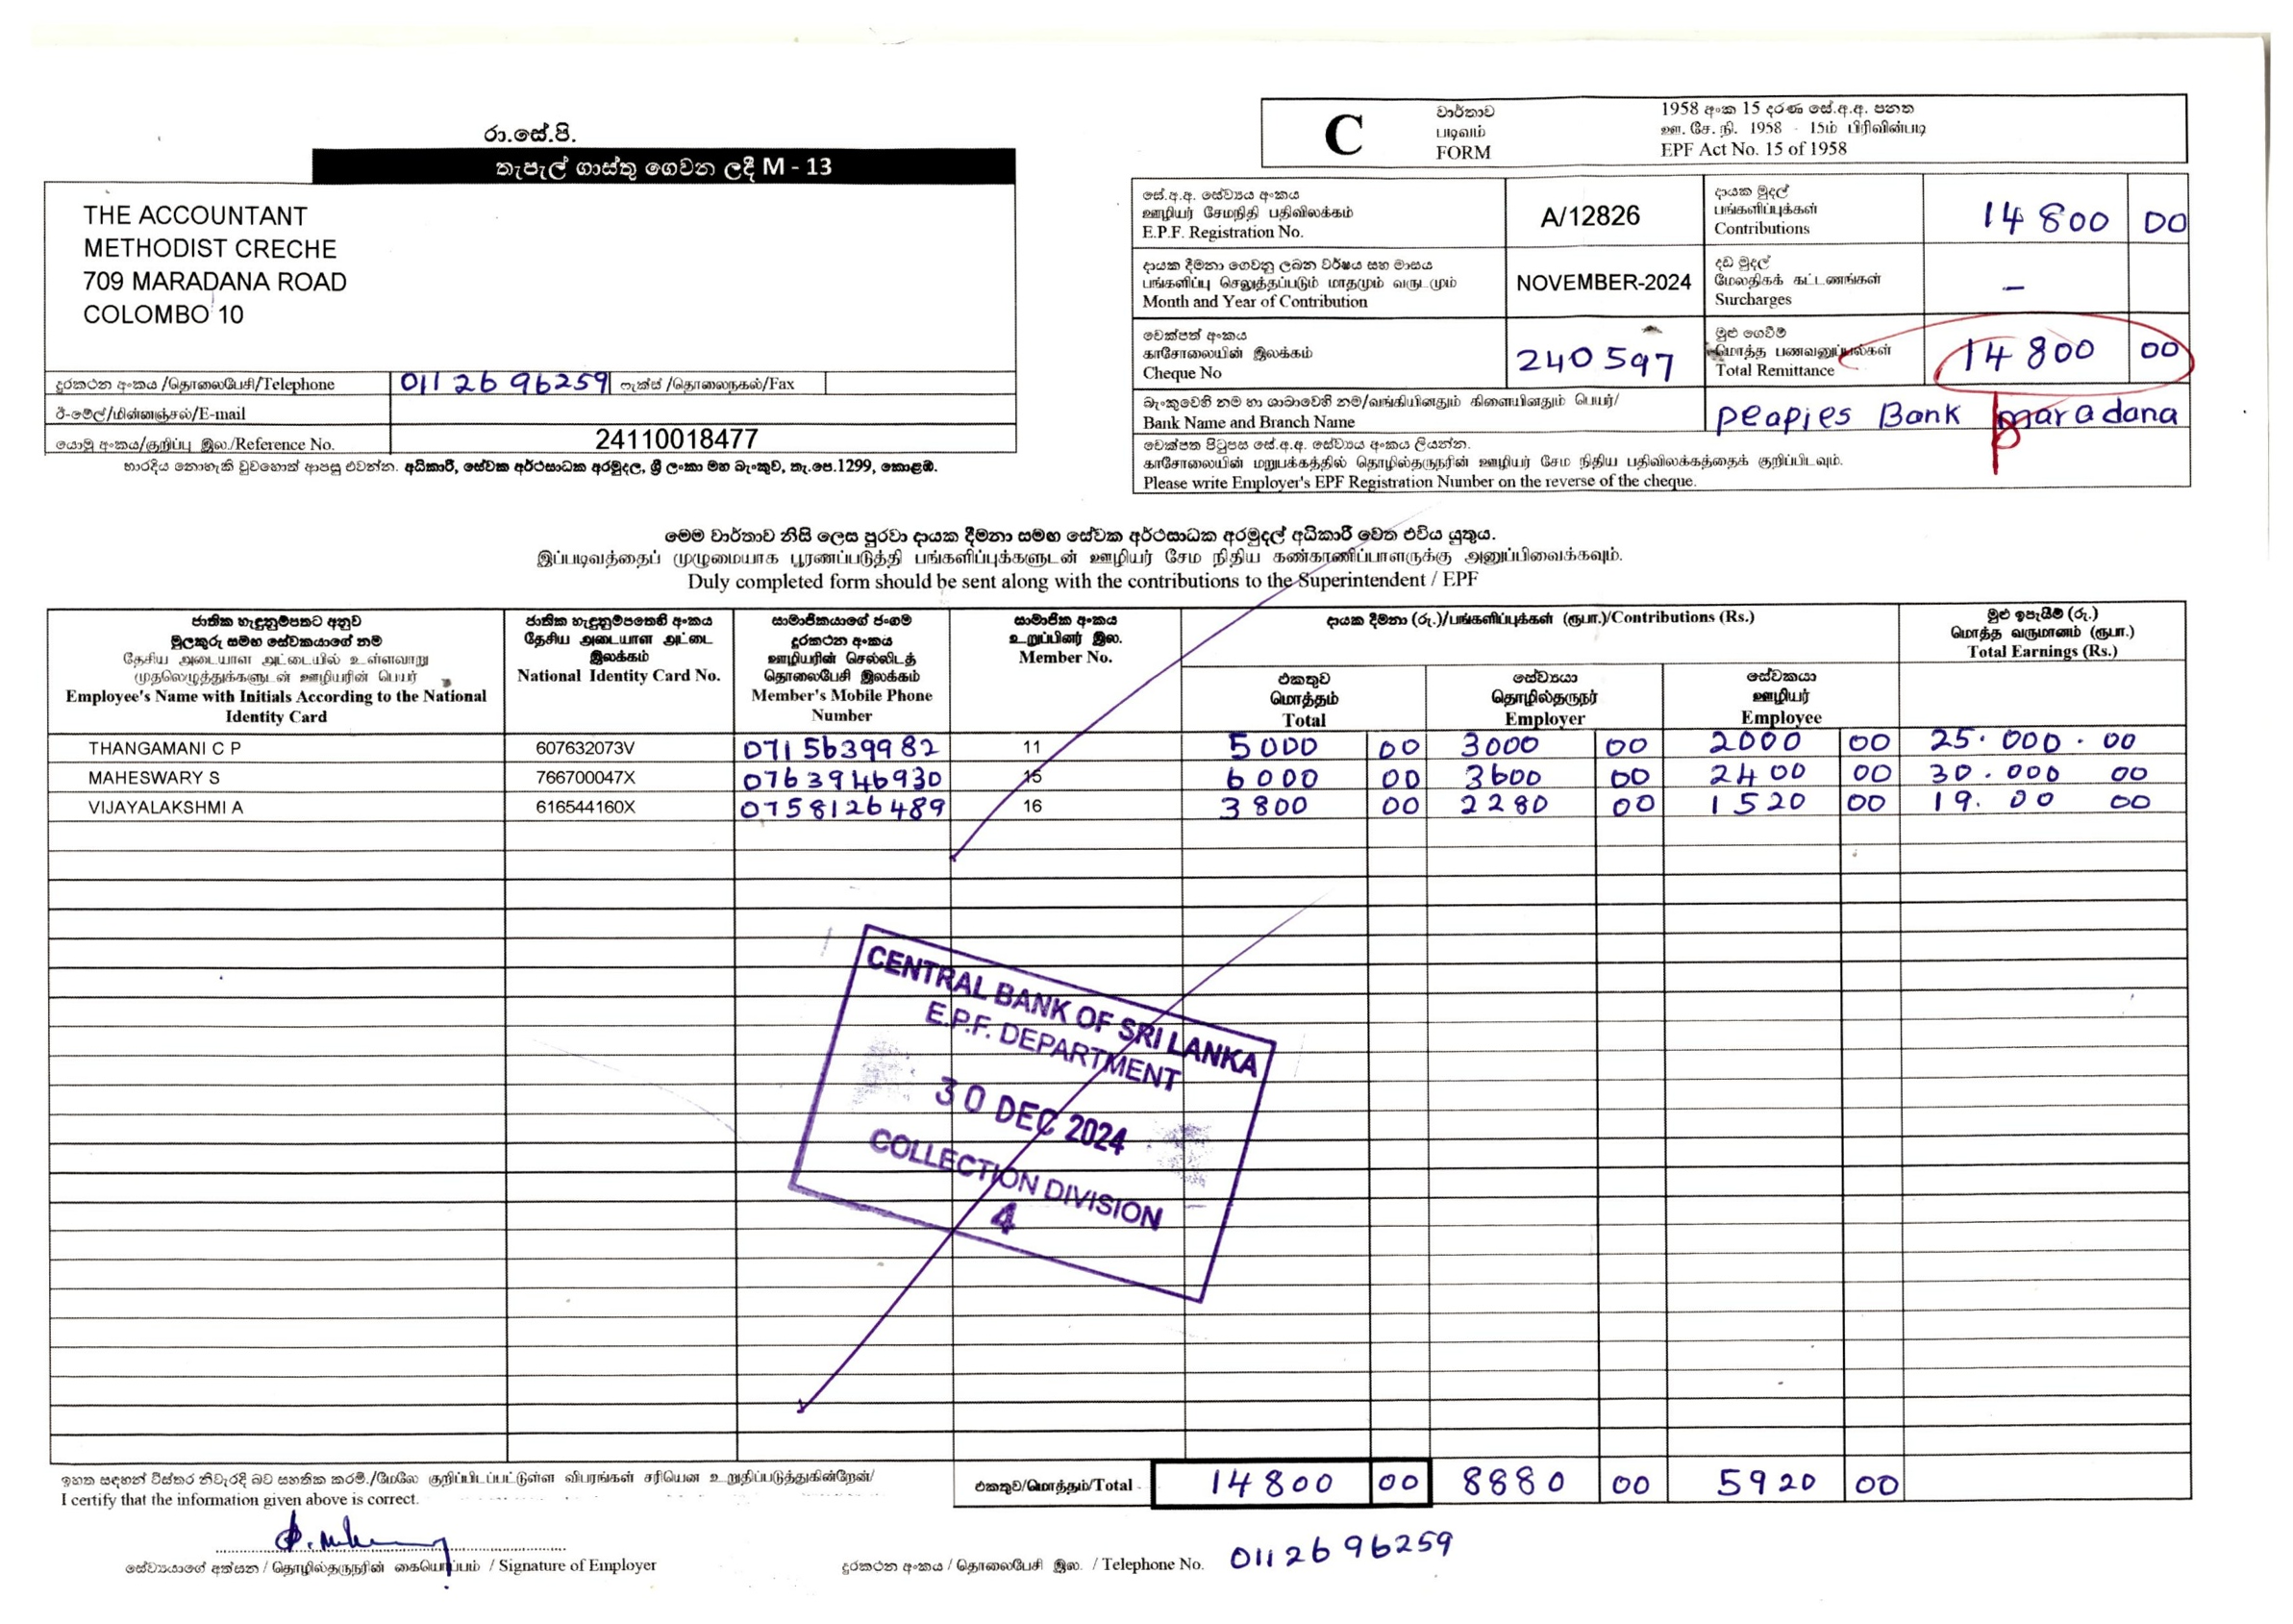 රා.සේ.පි.
තැපැල් ගාස්තු ගෙවන ලදී M - 13
THE ACCOUNTANT
METHODIST CRECHE
709 MARADANA ROAD
COLOMBO 10
දුරකථන අංකය /தொலைபேசி/Telephone 011 26 96259 ෆැක්ස් /தொலைநகல்/Fax
ඊ-මේල්/மின்னஞ்சல்/E-mail
යොමු අංකය/குறிப்பு இல./Reference No. 24110018477
භාරදිය නොහැකි වුවහොත් ආපසු එවන්න. අධිකාරී, සේවක අර්ථසාධක අරමුදල, ශ්‍රී ලංකා මහ බැංකුව, තැ.පෙ.1299, කොළඹ.
C
වාර්තාව
படிவம்
FORM
1958 අංක 15 දරණ සේ.අ.අ. පනත
ஊ. சே. நி. 1958 - 15ம் பிரிவின்படி
EPF Act No. 15 of 1958
සේ.අ.අ. සේව්‍යය අංකය
ஊழியர் சேமநிதி பதிவிலக்கம்
E.P.F. Registration No.
A/12826
දායක මුදල්
பங்களிப்புக்கள்
Contributions
14 800 00
දායක දීමනා ගෙවනු ලබන වර්ෂය සහ මාසය
பங்களிப்பு செலுத்தப்படும் மாதமும் வருடமும்
Month and Year of Contribution
NOVEMBER-2024
දඩ මුදල්
மேலதிகக் கட்டணங்கள்
Surcharges
–
චෙක්පත් අංකය
காசோலையின் இலக்கம்
Cheque No
240597
මුළු ගෙවීම්
மொத்த
Total Remittance
14 800 00
බැංකුවෙහි නම හා ශාඛාවෙහි නම/வங்கியினதும் கிளையினதும் பெயர்/
Bank Name and Branch Name
peapies Bank maradana
චෙක්පත පිටුපස සේ.අ.අ. සේව්‍යය අංකය ලියන්න.
காசோலையின் மறுபக்கத்தில் தொழில்தருநரின் ஊழியர் சேம நிதிய பதிவிலக்கத்தைக் குறிப்பிடவும்.
Please write Employer's EPF Registration Number on the reverse of the cheque.
මෙම වාර්තාව නිසි ලෙස පුරවා දායක දීමනා සමඟ සේවක අර්ථසාධක අරමුදල් අධිකාරී වෙත එවිය යුතුය.
இப்படிவத்தைப் முழுமையாக பூரணப்படுத்தி பங்களிப்புக்களுடன் ஊழியர் சேம நிதிய கண்காணிப்பாளருக்கு அனுப்பிவைக்கவும்.
Duly completed form should be sent along with the contributions to the Superintendent / EPF
ජාතික හැඳුනුම්පතට අනුව
මුලකුරු සමඟ සේවකයාගේ නම
தேசிய அடையாள அட்டையில் உள்ளவாறு
முதலெழுத்துக்களுடன் ஊழியரின் பெயர்
Employee's Name with Initials According to the National
Identity Card
ජාතික හැඳුනුම්පතෙහි අංකය
தேசிய அடையாள அட்டை
இலக்கம்
National Identity Card No.
සාමාජිකයාගේ ජංගම
දුරකථන අංකය
ஊழியரின் செல்லிடத்
தொலைபேசி இலக்கம்
Member's Mobile Phone
Number
සාමාජික අංකය
உறுப்பினர் இல.
Member No.
දායක දීමනා (රු.)/பங்களிப்புக்கள் (ரூபா.)/Contributions (Rs.)
මුළු ඉපැයීම් (රු.)
மொத்த வருமானம் (ரூபா.)
Total Earnings (Rs.)
එකතුව
மொத்தம்
Total
සේව්‍යයා
தொழில்தருநர்
Employer
සේවකයා
ஊழியர்
Employee
THANGAMANI C P 607632073V 0715639982 11 5000 00 3000 00 2000 00 25.000.00
MAHESWARY S 766700047X 0763946930 15 6000 00 3600 00 2400 00 30.000 00
VIJAYALAKSHMI A 616544160X 0758126489 16 3800 00 2280 00 1520 00 19.00 00
CENTRAL BANK OF SRI LANKA
E.P.F. DEPARTMENT
30 DEC 2024
COLLECTION DIVISION
4
ඉහත සඳහන් විස්තර නිවැරදි බව සහතික කරමි./மேலே குறிப்பிடப்பட்டுள்ள விபரங்கள் சரியென உறுதிப்படுத்துகின்றேன்/
I certify that the information given above is correct.
එකතුව/மொத்தம்/Total 14800 00 8880 00 5920 00
සේව්‍යයාගේ අත්සන / தொழில்தருநரின் கையொப்பம் / Signature of Employer
දුරකථන අංකය / தொலைபேசி இல. / Telephone No. 011 26 96259